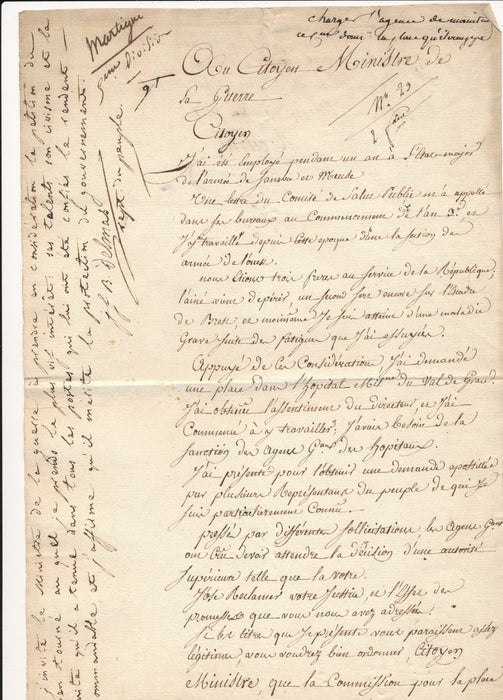 charger l'agence de maintenir
ce Cen dans la place qu'il occupe
Martique
5eme division
Au Citoyen Ministre de
la Guerre
No. 23
2 pièces
Citoyen
J'ai été Employé pendant un an à l'Etat-major
de l'armée de Sambre et Meuse
Une lettre du Comité de Salut Public m'a appellé
dans ses bureaux au Commencement de l'an 3e. et
J'y travaillé depuis cette époque dans la section des
armée de l'ouest.
nous étions trois frere au service de la République,
l'ainé vient de périr, un second sert encore sur l'Escadre
de Brest, et moi même Je suis atteint d'une maladie
Grave suite des fatigues que J'ai essuyées.
Appuyé de la Considération J'ai demandé
une place dans l'hopital Mil.re du Val de Grace.
J'ai obtenu l'assentiment du directeur, et J'ai
Commencé à y travailler, J'avais besoin de la
Sanction des Agens Gaux des hopitaux.
J'ai présenté pour l'obtenir une demande apostillée
par plusieurs Représentans du peuple de qui Je
suis particulierement Connu.
pressés par différentes sollicitations les agens Gaux
ont Cru devoir attendre la décision d'une autorité
Supérieure telle que la votre.
J'ose Réclamer votre Justice, et l'Effet des
promesses que vous nous avez adressées.
Si les titres que Je présente vous paraissent assez
légitimes, vous voudrez bien ordonner, Citoyen
Ministre, que la Commission pour la place
J'invite le Ministre de la guerre à prendre en considération la pétition du
Cen auquel je prends le plus vif interet: ses talents son civisme et la
qu'il a tenue dans tous les postes qui lui ont été confiés le rendent
recommandable et j'affirme qu'il mérite la protection du gouvernement.
J. B. Delmas
rept. du peuple